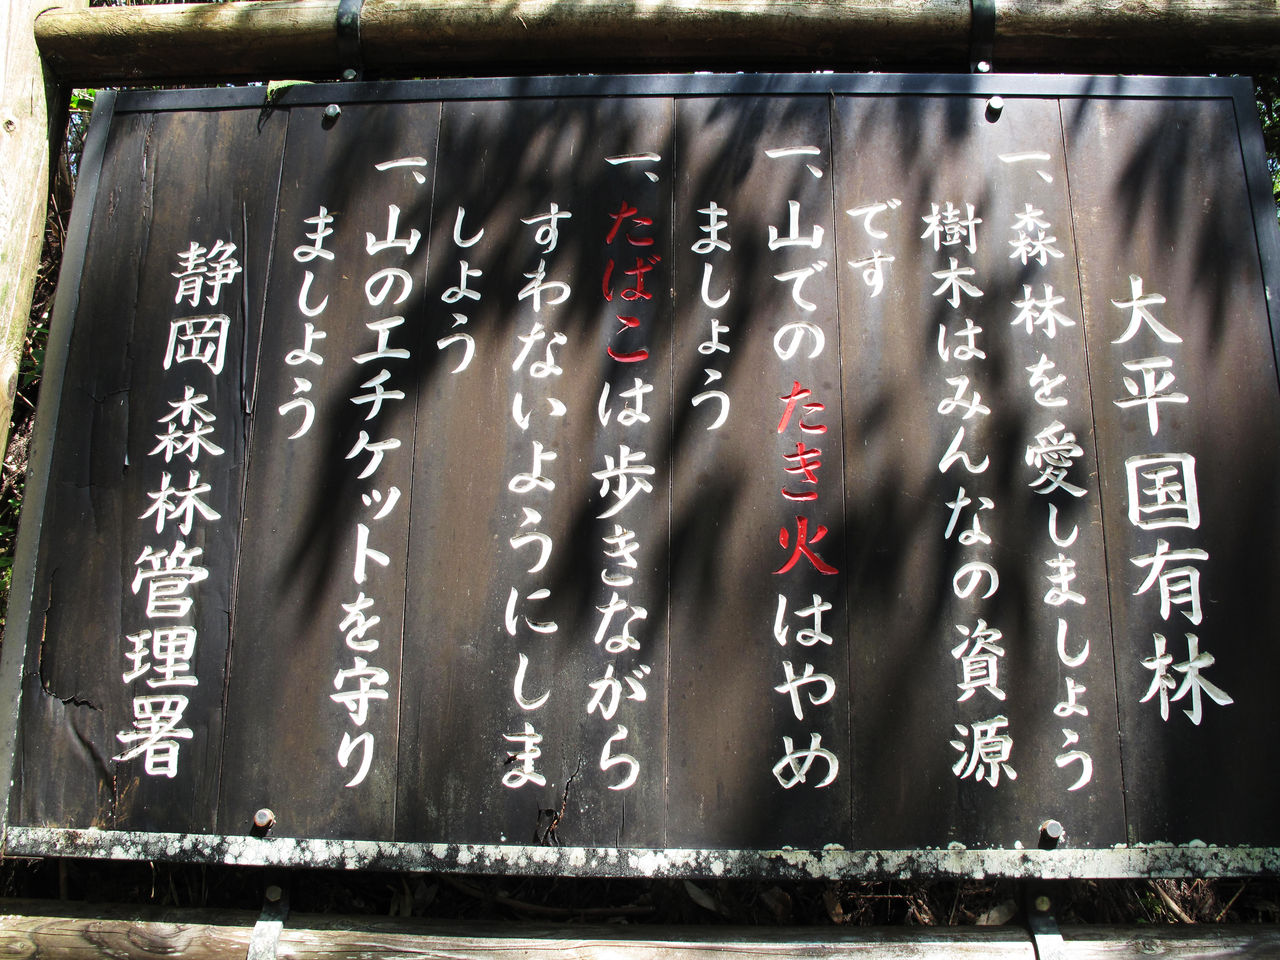 大平国有林
一、森林を愛しましょう
樹木はみんなの資源
です
一、山でのたき火はやめ
ましょう
一、たばこは歩きながら
すわないようにしま
しょう
一、山のエチケットを守り
ましよう
静岡森林管理署